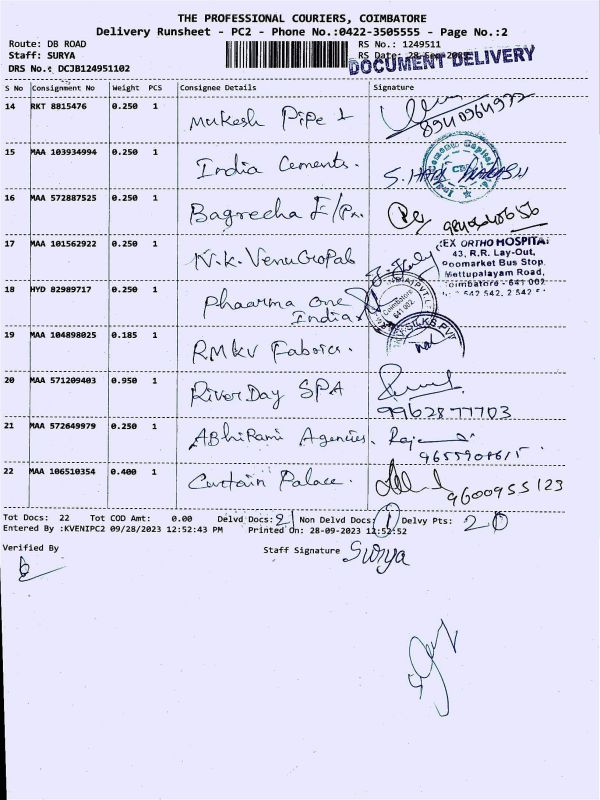 THE PROFESSIONAL COURIERS, COIMBATORE
Delivery Runsheet - PC2 - Phone No.:0422-3505555 - Page No.:2
Route: DB ROAD RS No.: 1249511
Staff: SURYA RS Date: 28-Sep-2023
DOCUMENT DELIVERY
DRS No.: DCJB124951102
S No Consignment No Weight PCS Consignee Details Signature
14 RKT 8815476 0.250 1 Mukesh Pipe 8940964972
15 MAA 103934994 0.250 1 India Cements. S. HARI PRAKASH
16 MAA 572887525 0.250 1 Bagrecha
17 MAA 101562922 0.250 1 N.K. VenuGopal
EX ORTHO HOSPITAL
43, R.R. Lay-Out,
Poomarket Bus Stop,
Mettupalayam Road,
Coimbatore - 641 002
18 HYD 82989717 0.250 1 Phaarma One India
Coimbatore 641 002
19 MAA 104898025 0.185 1 RMKV Fabrics. SILKS PVT
20 MAA 571209403 0.950 1 River Day SPA 9962877703
21 MAA 572649979 0.250 1 ABhiRami Agencies.
22 MAA 106510354 0.400 1 Curtain Palace. 9600955123
Tot Docs: 22 Tot COD Amt: 0.00 Delvd Docs: 21 Non Delvd Docs: 1 Delvy Pts: 20
Entered By :KVENIPC2 09/28/2023 12:52:43 PM Printed On: 28-09-2023 12:52:52
Verified By Staff Signature Surya